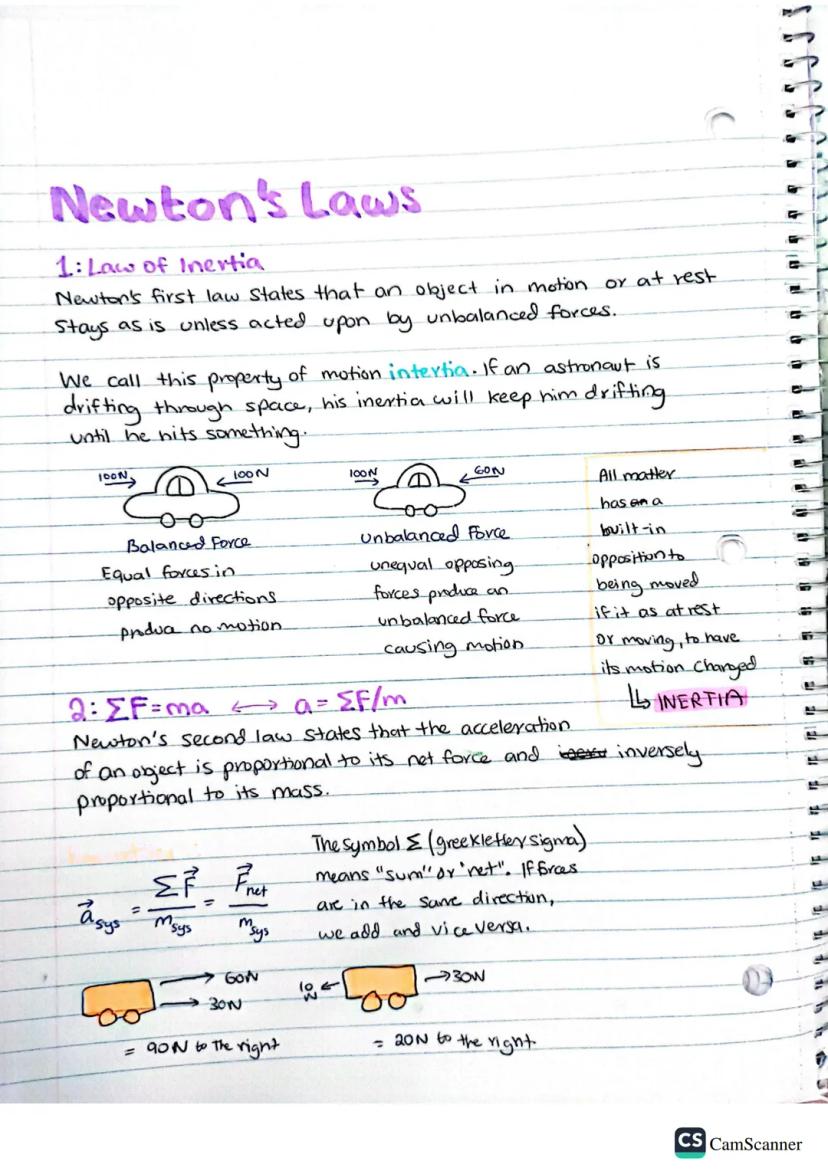 Newton's Laws
1: Law of Inertia
Newton's first law states that an object in motion or at rest
stays as is unless acted upon by unbalanced forces.
We call this property of motion intertia. If an astronaut is
drifting through space, his inertia will keep him drifting
until he hits something.
100N 100N
Balanced Force
Equal forces in
opposite directions
produa no motion
100N 60N
Unbalanced Force
unequal opposing
forces produce an
unbalanced force
causing motion
All matter
has an a
built-in
opposition to
being moved
if it as at rest
or moving, to have
its motion changed
↳ INERTIA
2: ΣF=ma ⟷ a=ΣF/m
Newton's second law states that the acceleration
of an object is proportional to its net force and inversely
proportional to its mass.
a⃗sys = ΣF⃗/msys = F⃗net/msys
The symbol Σ (greek letter sigma)
means "sum" or "net". If forces
are in the same direction,
we add and vice versa.
60N
30N
= 90N to the right
10N 30N
= 20N to the right
CS CamScanner